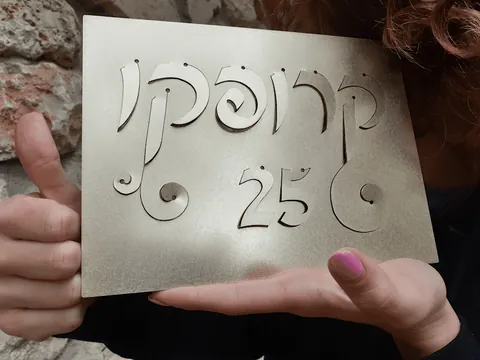 קרופקו
25